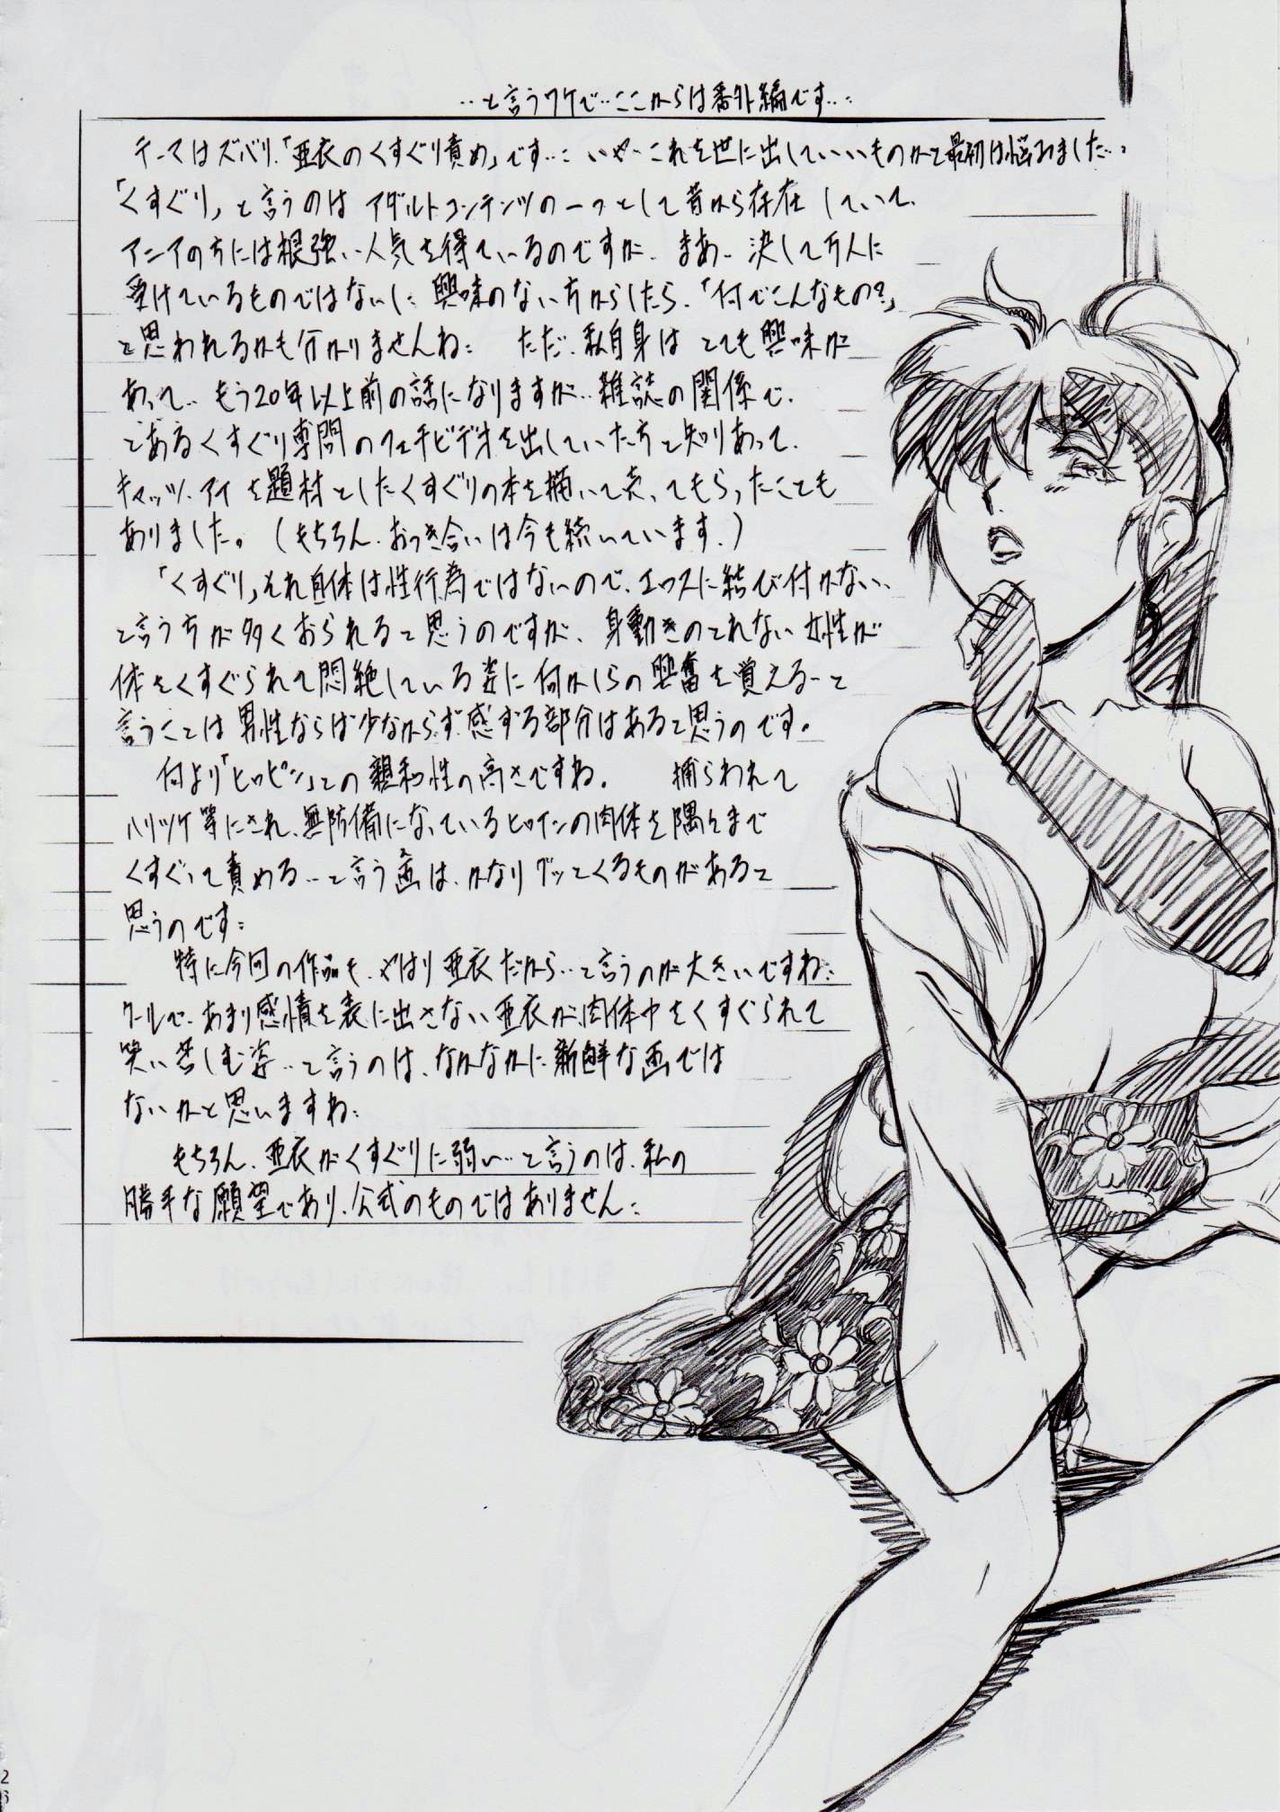 ‥と言うワケで‥ここからは番外編です‥:
テーマはズバリ、「亜衣のくすぐり責め」です‥: いやーこれを世に出していいものかと最初は悩みました‥、
「くすぐり」と言うのは アダルトコンテンツの一つとして昔から存在していて、
マニアの方には根強い人気を得ているのですが、まあ、決して万人に
受けているものではないし: 興味のない方からしたら、「何でこんなもの?」
と思われるかも分かりませんね: ただ、私自身は とても興味が
あって‥もう20年以上前の話になりますが‥雑誌の関係で、
とあるくすぐり専門のフェチビデオを出していた方と知りあって、
キャッツ・アイを題材としたくすぐりの本を描いて売ってもらったことも
ありました。(もちろん、おつき合いは今も続いています。)
「くすぐり」それ自体は性行為ではないので、エロスに結び付かない、
と言う方が多くおられると思うのですが、身動きのとれない女性が
体をくすぐられて悶絶している姿に何かしらの興奮を覚える‥と
言うことは男性ならば少なからず感ずる部分はあると思うのです。
何より「ヒロピン」との親和性の高さですね。 捕らわれて
ハリツケ等にされ、無防備になっているヒロインの肉体を隅々まで
くすぐって責める‥と言う画は、かなりグッとくるものがあると
思うのです:
特に今回の作品も、やはり亜衣だから‥と言うのが大きいですね:
クールで、あまり感情を表に出さない亜衣が、肉体中をくすぐられて
笑い苦しむ姿‥と言うのは、なかなかに新鮮な画では
ないかと思いますね:
もちろん、亜衣がくすぐりに弱い‥と言うのは、私の
勝手な願望であり、公式のものではありません:
26